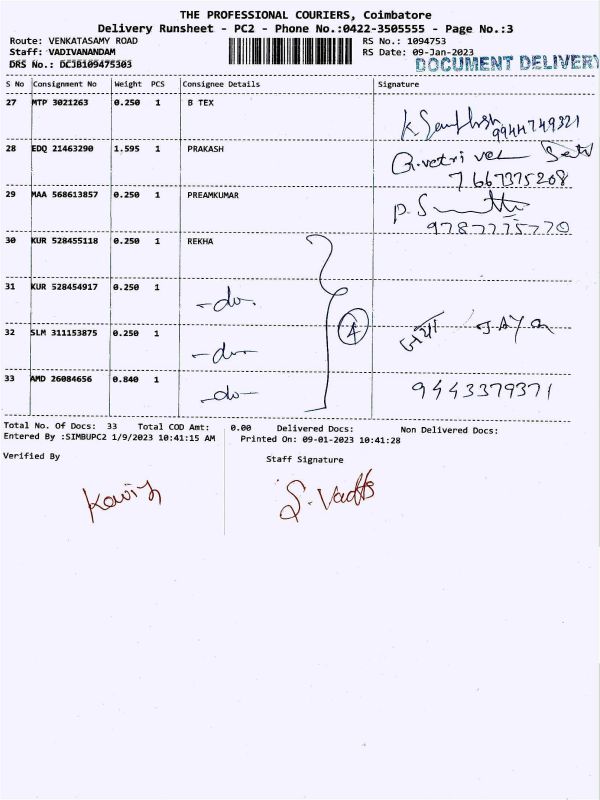 THE PROFESSIONAL COURIERS, Coimbatore
Delivery Runsheet - PC2 - Phone No.:0422-3505555 - Page No.:3
Route: VENKATASAMY ROAD
Staff: VADIVANANDAM
DRS No.: DCJB109475303
RS No.: 1094753
RS Date: 09-Jan-2023
DOCUMENT DELIVERY
S No Consignment No Weight PCS Consignee Details Signature
27 MTP 3021263 0.250 1 B TEX
9944749321
28 EDQ 21463290 1.595 1 PRAKASH
G.vetri vel
7667375208
29 MAA 568613857 0.250 1 PREAMKUMAR
9787775770
30 KUR 528455118 0.250 1 REKHA
31 KUR 528454917 0.250 1 -do-
32 SLM 311153875 0.250 1 -do- 4 जया JAYA
33 AMD 26084656 0.840 1 -do- 9443379371
Total No. Of Docs: 33 Total COD Amt: 0.00 Delivered Docs: Non Delivered Docs:
Entered By :SIMBUPC2 1/9/2023 10:41:15 AM Printed On: 09-01-2023 10:41:28
Verified By Staff Signature